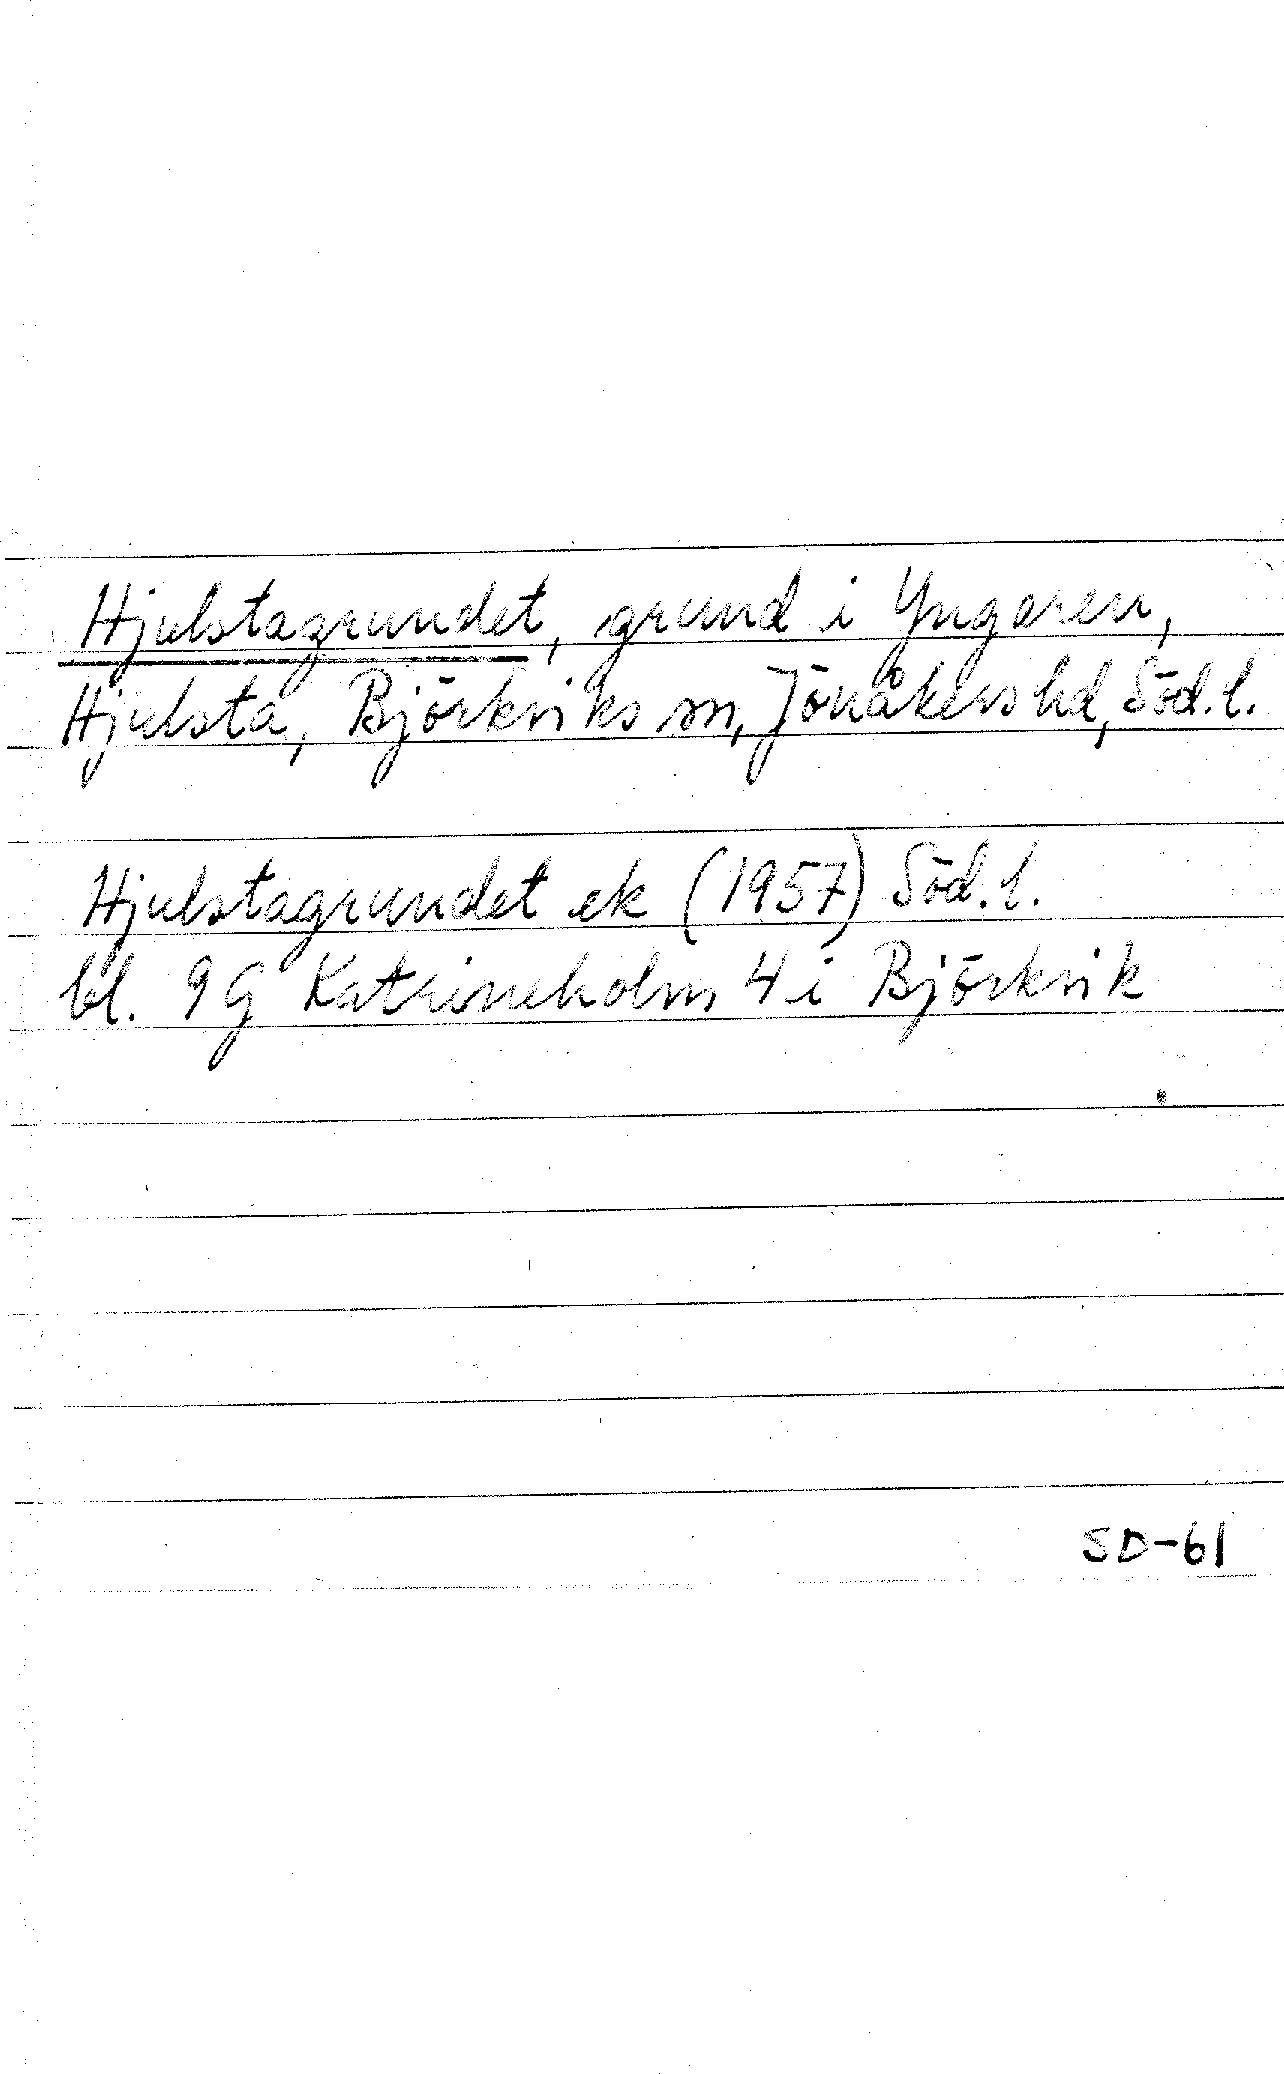 Hjulstagrundet, grund i Yngaren,
Hjulsta, Björkviks sn, Jönåkers hd, Söd.l.
Hjulstagrundet ek (1957) Söd.l.
bl. 9G Katrineholm 4 i Björkvik
SD-61